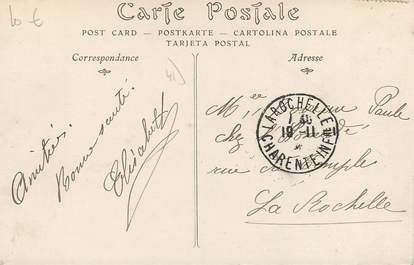 10 €
Carte Postale
POST CARD — POSTKARTE — CARTOLINA POSTALE
TARJETA POSTAL
Correspondance
Adresse
41)
Amitiés.
Bonne santé.
Elisabeth
LA ROCHELLE
19 - 11
CHARENTE INFRE
Paule
chez
rue du Temple
La Rochelle